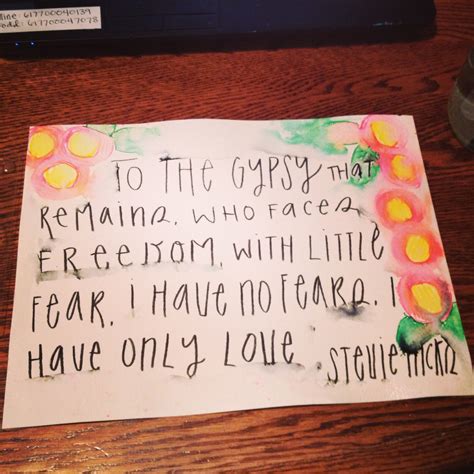 line: 617700040139
add: 617700047078
TO THE GYPSY THAT
REMAINS, WHO FACES
FREEDOM, WITH LITTLE
FEAR. I HAVE NO FEARS, I
HAVE ONLY LOVE
STEVIE NICKS